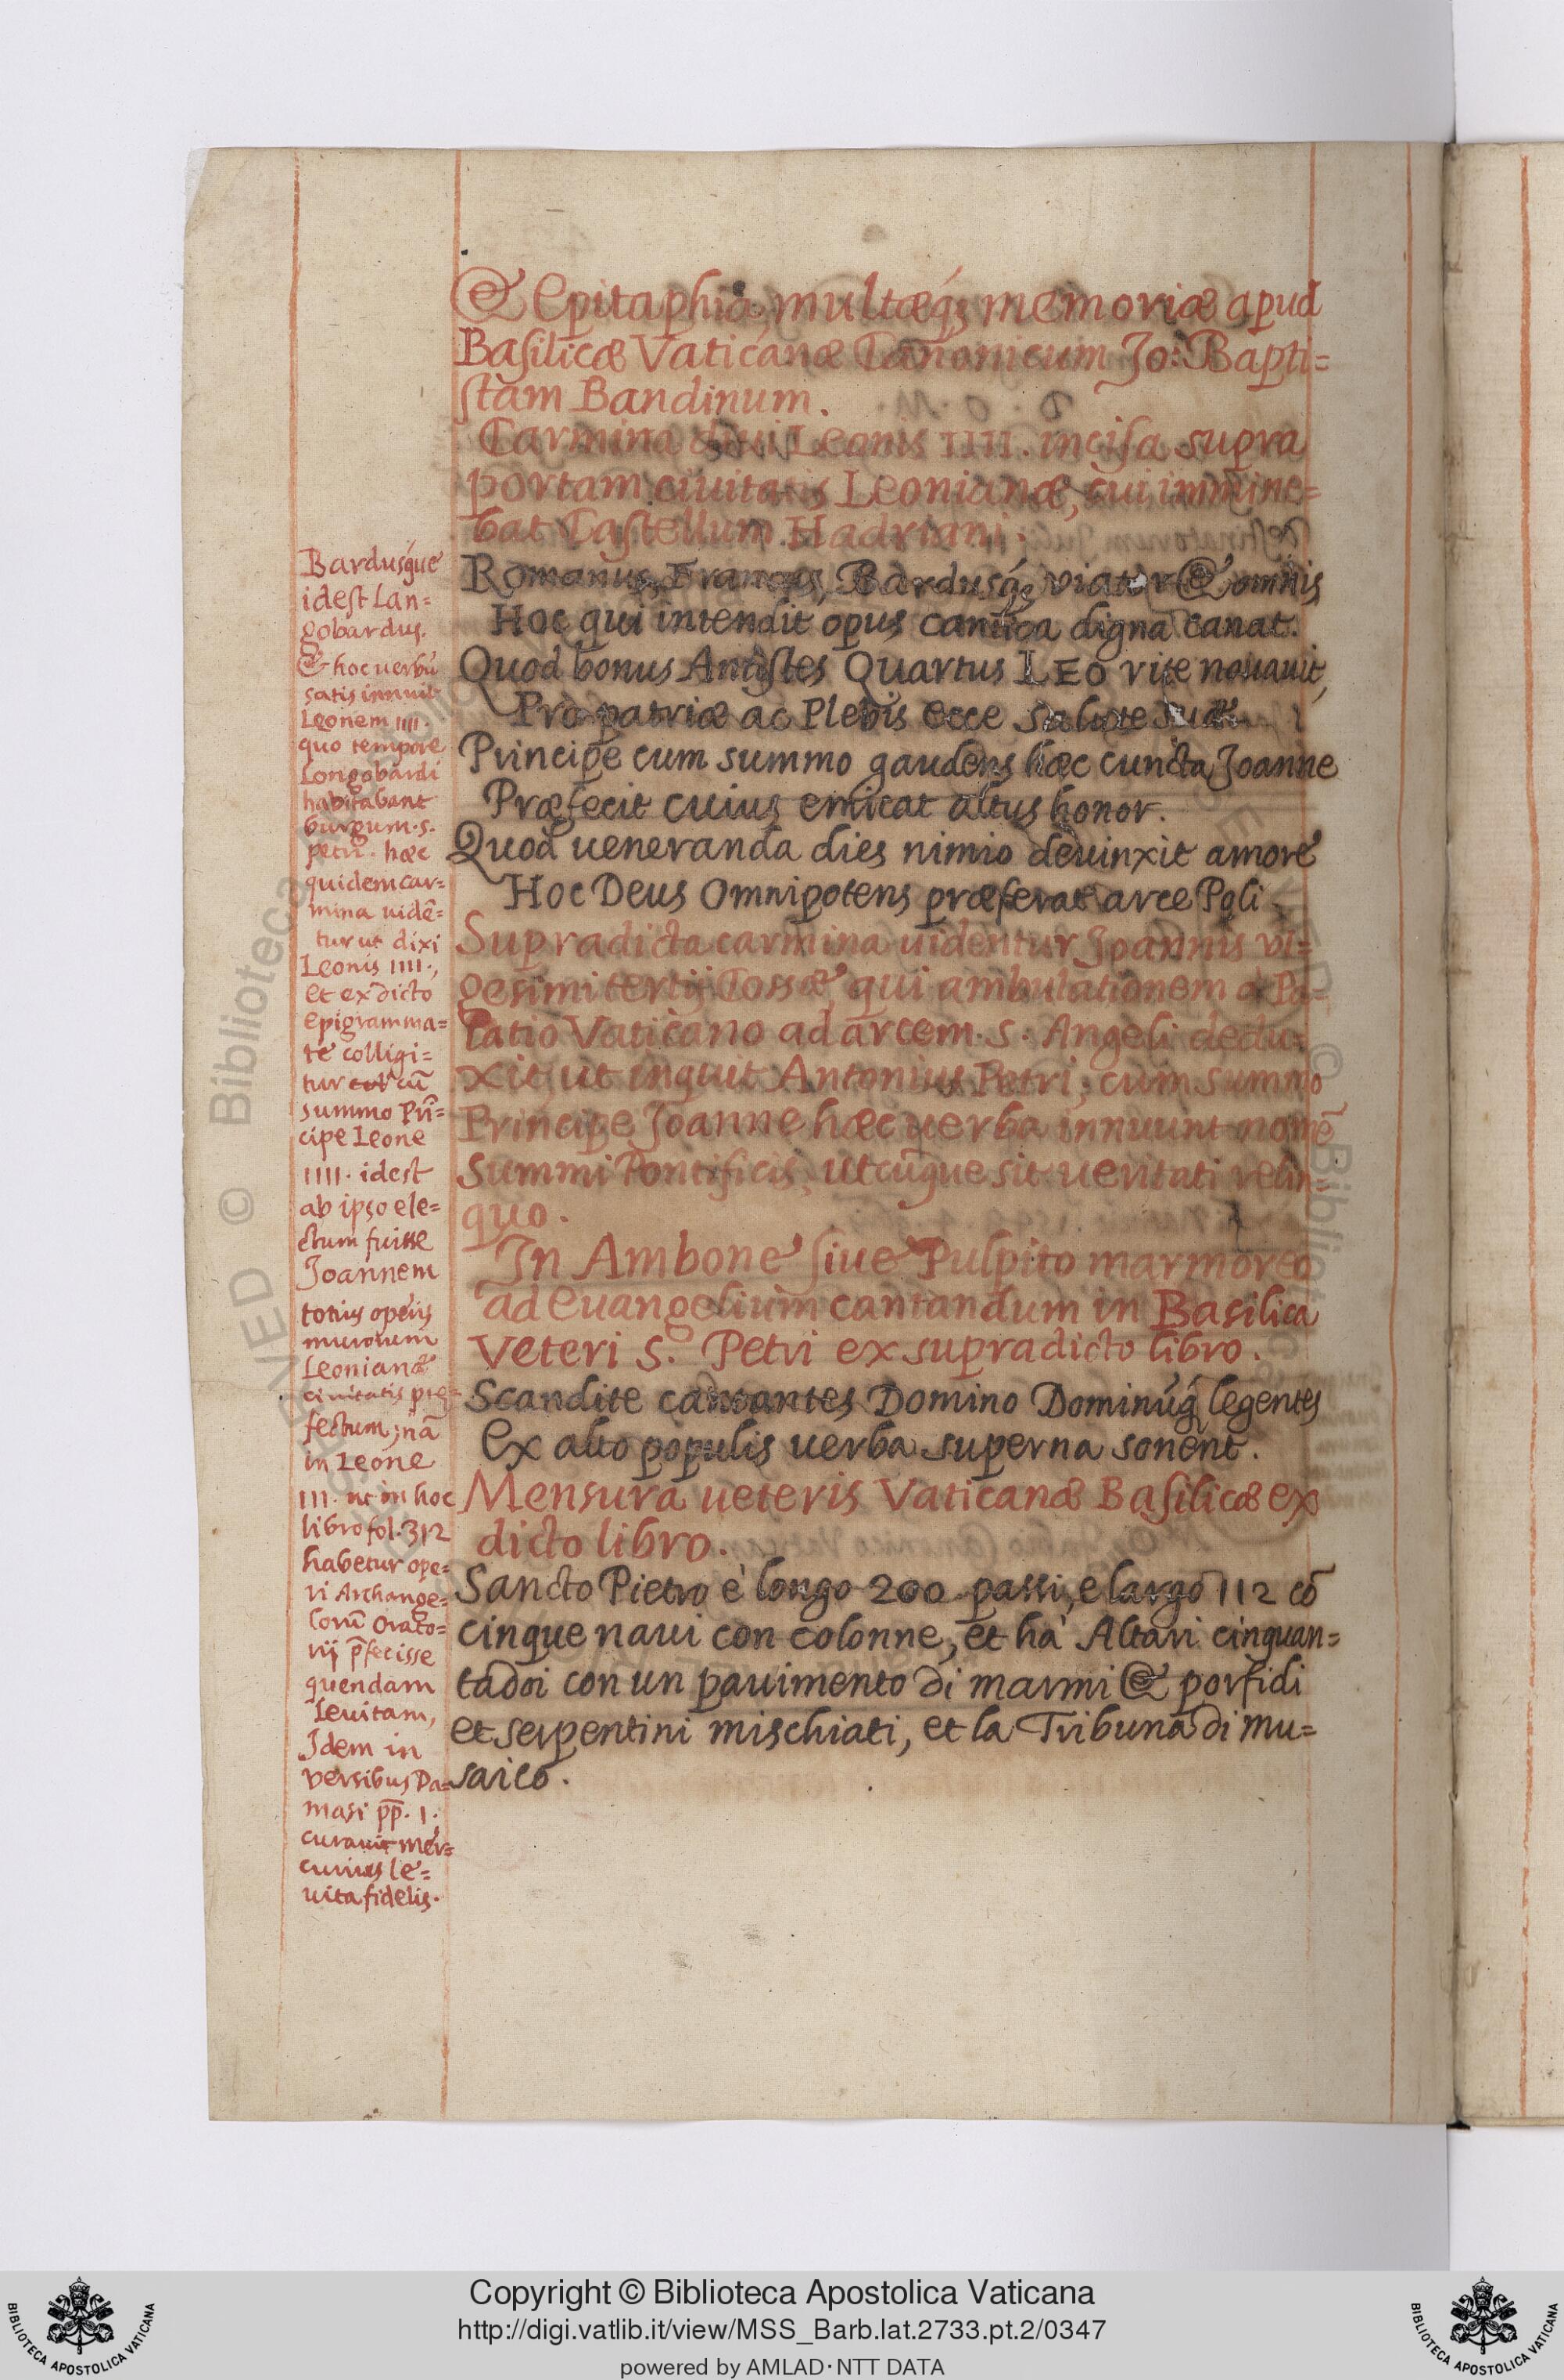 & Epitaphia, multæq́ʒ memoriæ apud
Basilicæ Vaticanæ Canonicum Jo: Bapti=
stam Bandinum.
Carmina diui Leonis IIII. incisa supra
portam ciuitatis Leonianæ, cui immine=
bat Castellum Hadriani.
Romanus, Francus, Bardusq́ʒ viator & omnis
Hoc qui intendit opus cantica digna canat.
Quod bonus Antistes Quartus LEO rite nouauit,
Pro patriæ ac Plebis ecce salute suæ
Principe cum summo gaudens hæc cuncta Joanne
Præfecit cuius emicat altus honor.
Quod ueneranda dies nimio deuinxit amore
Hoc Deus Omnipotens præferat arce Poli.
Supradicta carmina uidentur Joannis vi=
gesimi tertij Cossæ, qui ambulationem à Pa=
latio Vaticano ad arcem. S. Angeli dedu=
xit, ut inquit Antonius Petri, cum summo
Principe Joanne hæc uerba innuunt nomẽ
Summi Pontificis, utcũque sit ueritati relin=
quo.
In Ambone siue Pulpito marmoreo
ad Euangelium cantandum in Basilica
Veteri S. Petri ex supradicto libro.
Scandite cantantes Domino Dominúq́ legentes
Ex alto populis uerba superna sonent.
Mensura ueteris Vaticanæ Basilicæ ex
dicto libro.
Sancto Pietro è longo 200 passi, e largo 112 cõ
cinque naui con colonne, et hà Altari cinquan=
tadoi con un pauimento di marmi & porfidi
et serpentini mischiati, et la Tribuna di mu=
saico.
Bardusq́ue
idest Lan=
gobardus.
& hoc uerbũ
satis innuit
Leonem IIII.
quo tempore
Longobardi
habitabant
burgum. S.
petri. hæc
quidem car=
mina uidẽ=
tur ut dixi
Leonis IIII.,
et ex dicto
epigramma=
te colligi=
tur cũ
summo Prĩ=
cipe Leone
IIII. idest
ab ipso ele=
ctum fuisse
Joannem
totius operis
murorum
Leonianæ
ciuitatis præ=
fectum; nã
in Leone
III. ut in hoc
libro fol. 312
habetur ope=
ri Archange=
lorũ Orato=
rij p̃fecisse
quendam
Leuitam,
Idem in
versibus Da=
masi pp̃. I.
curauit Mer=
curius le=
uita fidelis.
Copyright © Biblioteca Apostolica Vaticana
http://digi.vatlib.it/view/MSS_Barb.lat.2733.pt.2/0347
powered by AMLAD·NTT DATA
BIBLIOTECA APOSTOLICA VATICANA
BIBLIOTECA APOSTOLICA VATICANA